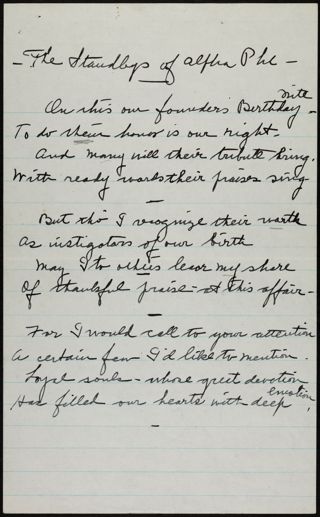 - The Standbys of Alpha Phi -
On this our founders Birthday nite -
To do them honor is our right -
And many will their tribute bring.
With ready words their praises sing
But tho' I recognize their worth
As instigators of our birth
May I to others leave my share
Of thankful praise - at this affair -
For I would call to your attention
A certain few I'd like to mention.
Loyal souls - whose great devotion
Has filled our hearts with deep emotion,